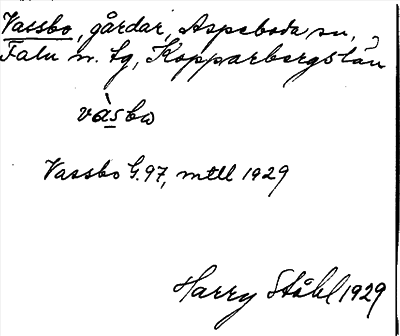 Vassbo, gårdar, Aspeboda sn,
Falu n. tg, Kopparbergs län
vàsbω
Vassbo G.97, mtll 1929
Harry Ståhl 1929